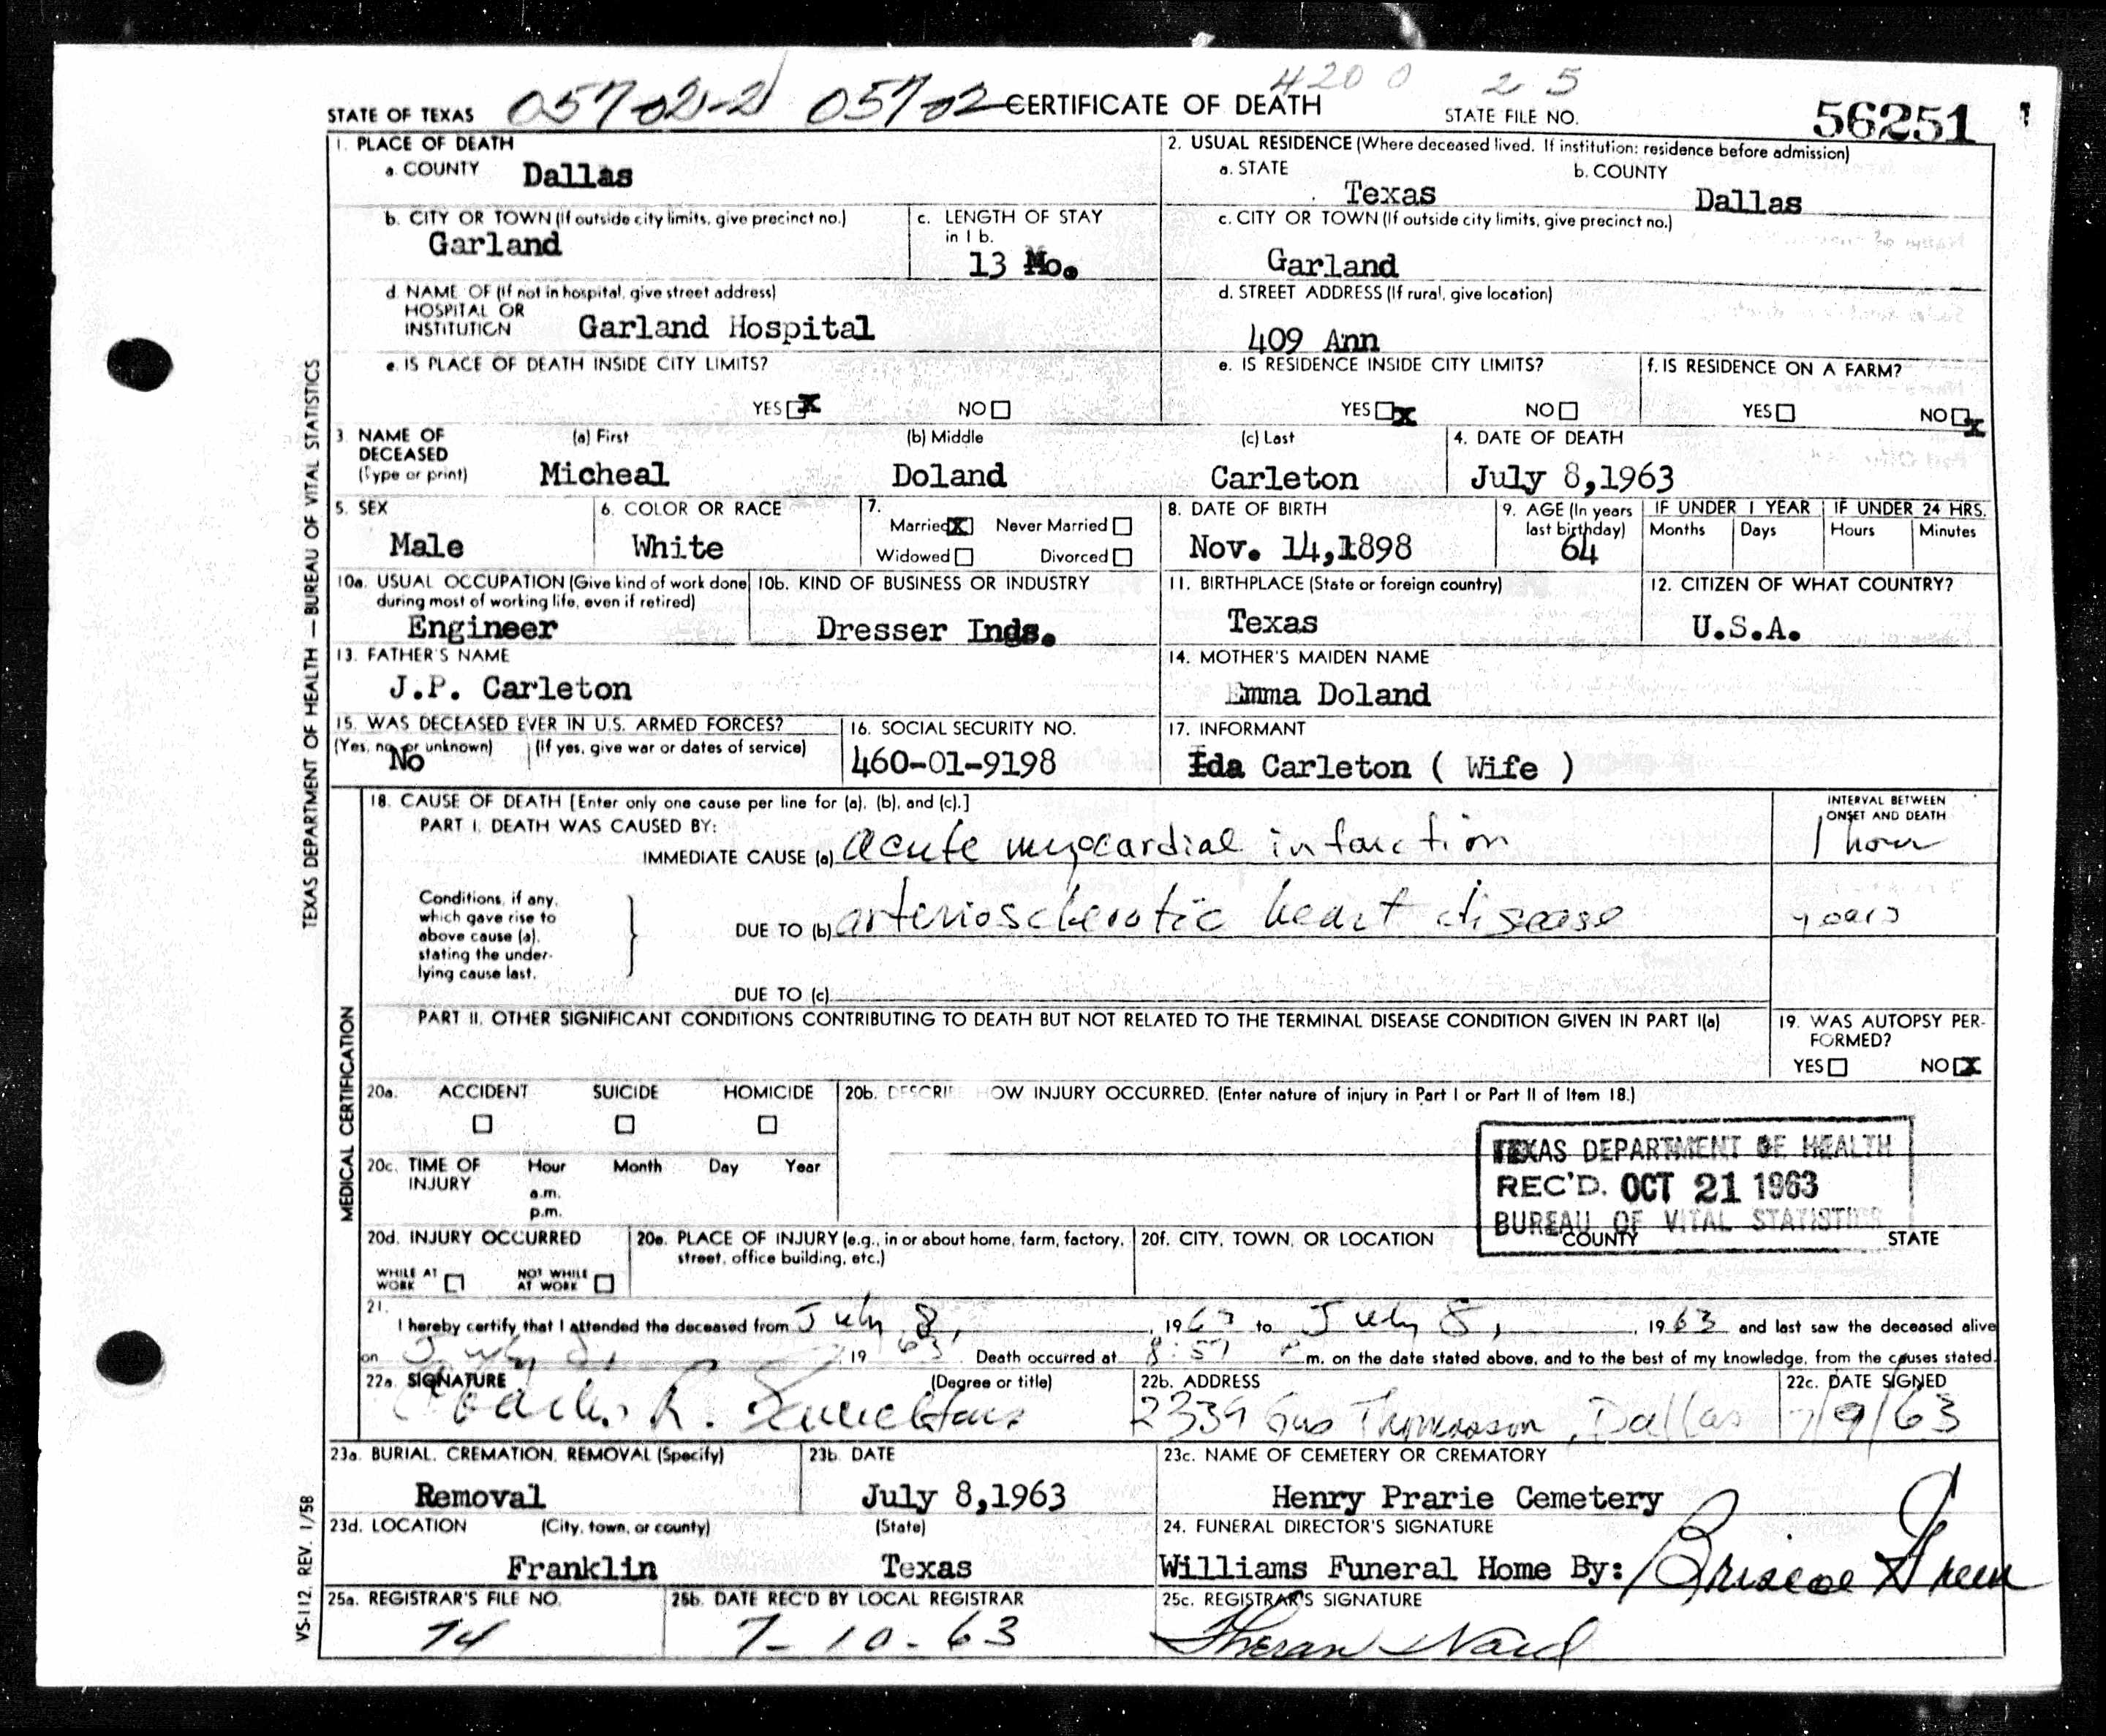 4200 25
STATE OF TEXAS 05702-2 05702 CERTIFICATE OF DEATH STATE FILE NO. 56251
1. PLACE OF DEATH
a. COUNTY Dallas
2. USUAL RESIDENCE (Where deceased lived. If institution: residence before admission)
a. STATE Texas b. COUNTY Dallas
b. CITY OR TOWN (If outside city limits, give precinct no.) Garland
c. LENGTH OF STAY in 1 b. 13 Mo.
c. CITY OR TOWN (If outside city limits, give precinct no.) Garland
d. NAME OF (If not in hospital, give street address) HOSPITAL OR INSTITUTION Garland Hospital
d. STREET ADDRESS (If rural, give location) 409 Ann
e. IS PLACE OF DEATH INSIDE CITY LIMITS? YES X NO
e. IS RESIDENCE INSIDE CITY LIMITS? YES X NO
f. IS RESIDENCE ON A FARM? YES NO X
3. NAME OF DECEASED (Type or print)
(a) First Micheal
(b) Middle Doland
(c) Last Carleton
4. DATE OF DEATH July 8,1963
5. SEX Male
6. COLOR OR RACE White
7. Married X Never Married
Widowed Divorced
8. DATE OF BIRTH Nov. 14,1898
9. AGE (In years last birthday) 64
IF UNDER 1 YEAR Months Days
IF UNDER 24 HRS. Hours Minutes
10a. USUAL OCCUPATION (Give kind of work done during most of working life, even if retired) Engineer
10b. KIND OF BUSINESS OR INDUSTRY Dresser Inds.
11. BIRTHPLACE (State or foreign country) Texas
12. CITIZEN OF WHAT COUNTRY? U.S.A.
13. FATHER'S NAME J.P. Carleton
14. MOTHER'S MAIDEN NAME Emma Doland
15. WAS DECEASED EVER IN U.S. ARMED FORCES?
(Yes, no, or unknown) No (If yes, give war or dates of service)
16. SOCIAL SECURITY NO. 460-01-9198
17. INFORMANT Ida Carleton ( Wife )
18. CAUSE OF DEATH [Enter only one cause per line for (a), (b), and (c).]
PART I. DEATH WAS CAUSED BY:
IMMEDIATE CAUSE (a) acute myocardial infarction
INTERVAL BETWEEN ONSET AND DEATH 1 hour
Conditions, if any, which gave rise to above cause (a), stating the underlying cause last.
DUE TO (b) arteriosclerotic heart disease years
DUE TO (c)
PART II. OTHER SIGNIFICANT CONDITIONS CONTRIBUTING TO DEATH BUT NOT RELATED TO THE TERMINAL DISEASE CONDITION GIVEN IN PART I(a)
19. WAS AUTOPSY PERFORMED? YES NO X
20a. ACCIDENT SUICIDE HOMICIDE
20b. DESCRIBE HOW INJURY OCCURRED. (Enter nature of injury in Part I or Part II of Item 18.)
20c. TIME OF INJURY Hour Month Day Year
a.m.
p.m.
TEXAS DEPARTMENT OF HEALTH
REC'D. OCT 21 1963
BUREAU OF VITAL STATISTICS
20d. INJURY OCCURRED
WHILE AT WORK NOT WHILE AT WORK
20e. PLACE OF INJURY (e.g., in or about home, farm, factory, street, office building, etc.)
20f. CITY, TOWN, OR LOCATION COUNTY STATE
21. I hereby certify that I attended the deceased from July 8, 1963 to July 8, 1963 and last saw the deceased alive
on July 8, 1963. Death occurred at 8:57 P m. on the date stated above, and to the best of my knowledge, from the causes stated.
22a. SIGNATURE (Degree or title)
Charles R.
22b. ADDRESS 2339 Gus Thomasson, Dallas
22c. DATE SIGNED 7/9/63
23a. BURIAL, CREMATION, REMOVAL (Specify) Removal
23b. DATE July 8,1963
23c. NAME OF CEMETERY OR CREMATORY Henry Prarie Cemetery
23d. LOCATION (City, town, or county) Franklin (State) Texas
24. FUNERAL DIRECTOR'S SIGNATURE Williams Funeral Home By: Briscoe Green
25a. REGISTRAR'S FILE NO. 74
25b. DATE REC'D BY LOCAL REGISTRAR 7-10-63
25c. REGISTRAR'S SIGNATURE Theran Ward
TEXAS DEPARTMENT OF HEALTH — BUREAU OF VITAL STATISTICS
MEDICAL CERTIFICATION
VS-112. REV. 1/58